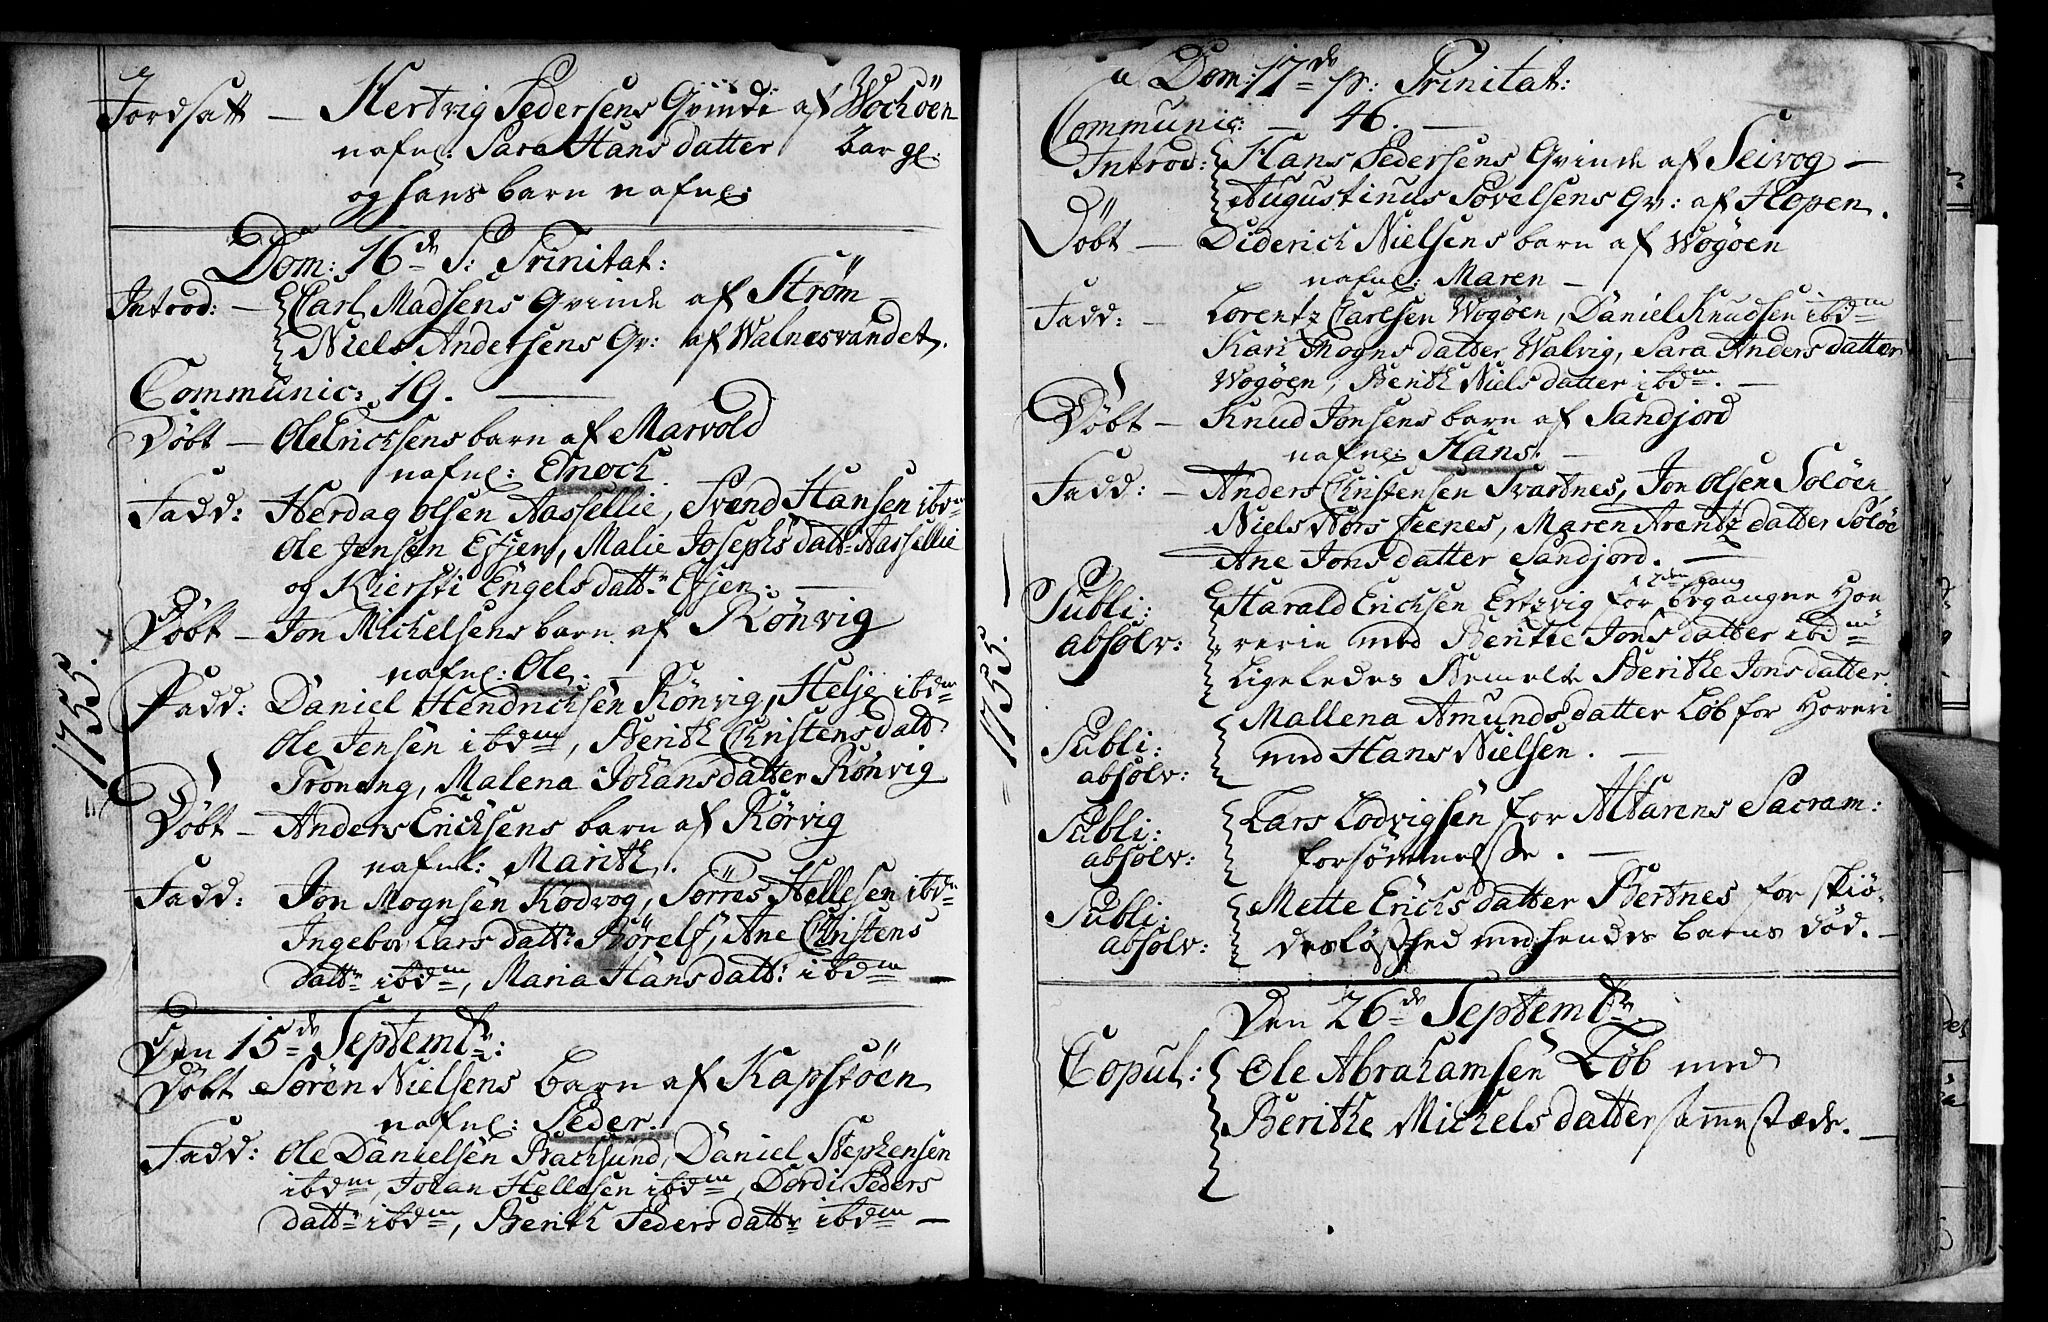 Jordsatt — Hertvig Pedersens Qvinde af Wochöen
nafnl: Sara Hans datter 2ar gl:
og hans barn nafnl:
Dom: 16de P: Trinitat:
Introd: — Carl Madsens Qvinde af Strøm
Niels Andersens Qv: af Walnesvandet.
Communic: 19. —
Döbt — Ole Ericksens barn af Marvold
nafnl: Enoch.
Fadd: Herdag Olsen Aasellie, Svend Hansen ibdm
Ole Jensen Efjen, Malie Josephs datt: Aasellie
og Kiersti Engels dattr Efjen: —
Döbt — Jon Michelsens barn af Rönvig
nafnl: Ole. —
Fadd: Daniel Hendrichsen Rönvig, Helje ibdm
Ole Jensen ibdm, Berith Christens datt
Troning, Malena Johans datter Rönvig
Döbt — Anders Ericksens barn af Rörvig
nafnl: Marith.
Fadd: Jon Mognsen Kodvog, Sörres Hellesen ibdm
Ingebor Lars datt: Börelf, Ane Christens
dattr ibdm, Maria Hans datt: ibdm —
= 1755.
Den 15de Septembr:
Döbt Søren Nielsens barn af Kapstöen
nafnl: Peder.
Fadd: Ole Danielsen Backsund, Daniel Stephensen
ibdm, Johan Hellesen ibdm, Dordi Peders
dattr ibdm, Berith Peders dattr ibdm —
Dom: 17de p: Trinitat:
Communic: — 46. —
Introd: Hans Pedersens Qvinde af Seivog —
Augustinus Povelsens Qv: af Hopen.
Döbt — Diderich Nielsens barn af Wogöen
nafnl: Maren —
Fadd: — Lorentz Carlsen Wogöen, Daniel Knudsen ibdm
Kari Mogns datter Walvig, Sara Anders datter
Wogöen, Berith Niels datter ibdm. —
Döbt — Knud Jonsens barn af Sandjord
nafnl: Hans. —
Fadd: — Anders Christensen Svartnes, Jon Olsen Solöen,
Niels Nors Feenes, Maren Arentz datter Solöe
Ane Jons datter Sandjord. —
Publi: Harald Ericksen Ertzvig for 2den gang begangne Hoe
absolv: rerie med Berithe Jons datter ibdm
Ligeledes Bemelte Berithe Jons datter.
Publi: Mallena Amunds datter Löb for Horeri
absolv: med Hans Nielsen. —
Publi: Lars Lodvigsen for Altarens Sacram:
absolv: forsömmelse. —
Publi: Mette Ericks datter Bertnes for skiö-
absolv: deslöshed med hendes barns död. —
= 1755. —
Den 26de Septembr:
Copul: Ole Abrahamsen Löb med
Berithe Michels datter sammestæds. —